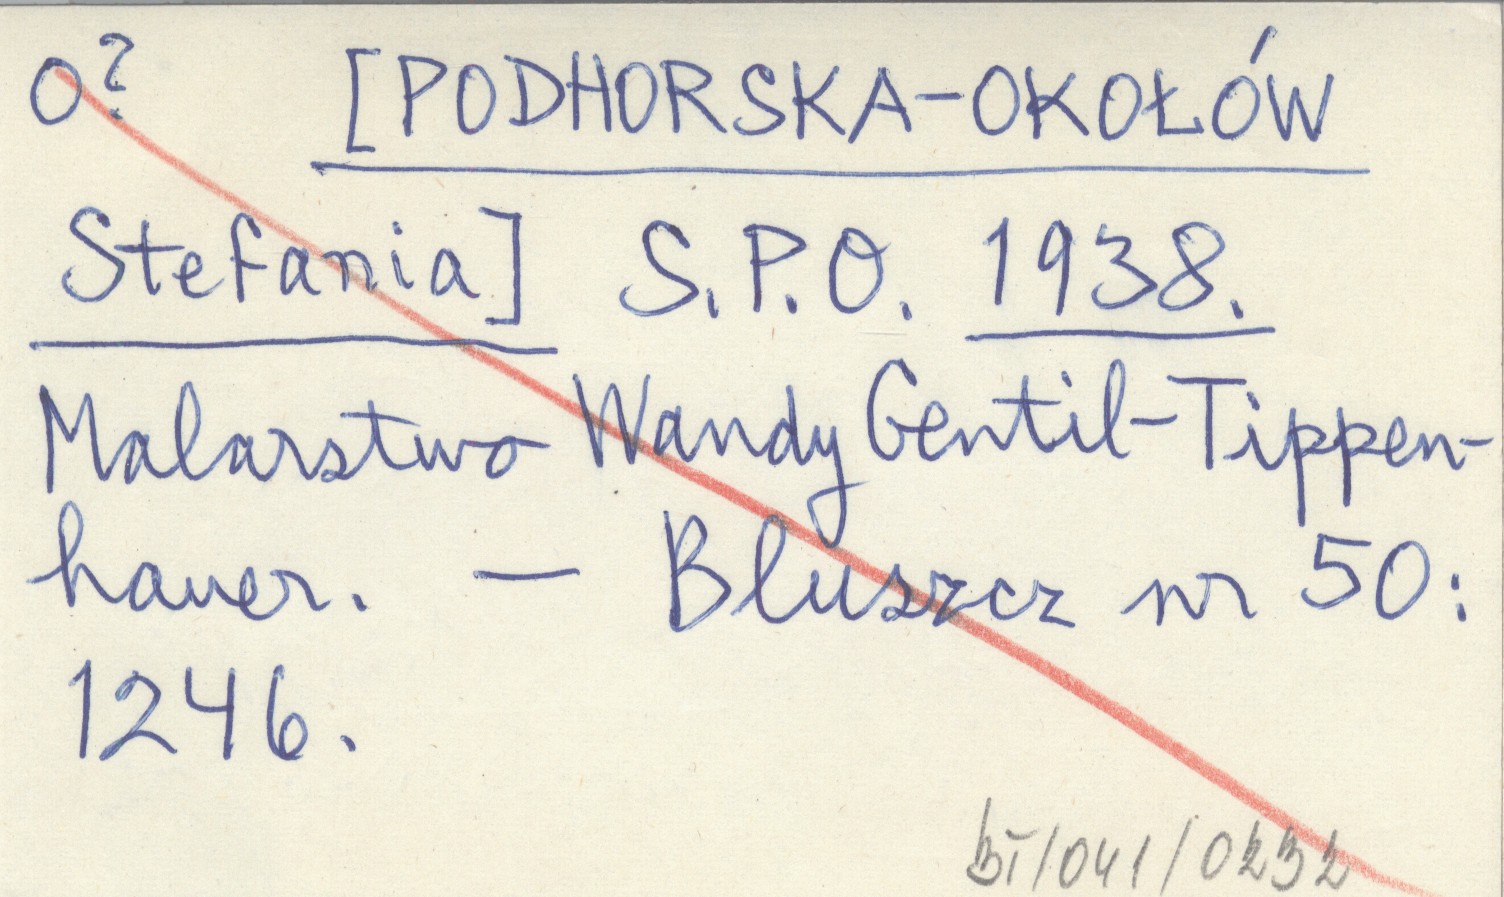 O? [PODHORSKA-OKOŁÓW
Stefania] S.P.O. 1938.
Malarstwo Wandy Gentil-Tippen-
hauer. — Bluszcz nr 50:
1246.
/041/0232